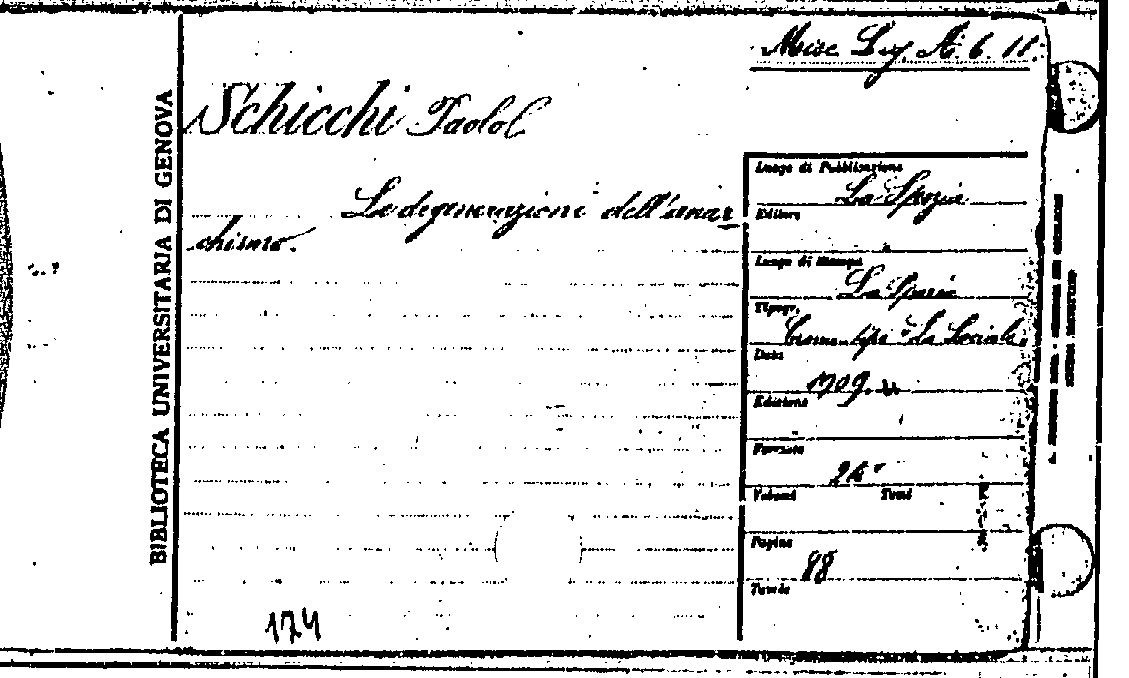 Misc. Lig. A. 6. 11.
BIBLIOTECA UNIVERSITARIA DI GENOVA
Schicchi Paolo
Le degenerazioni dell'anar
chismo.
Luogo di Pubblicazione
La Spezia
Editore
Luogo di Stampa
La Spezia
Tipogr.
"La Sociale
Data
1909.
Edizione
Formato
Volumi Tomi
Pagine
88
Tavole
174